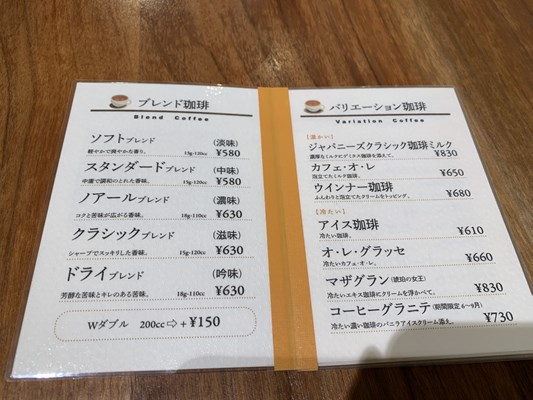 ブレンド珈琲
Blend Coffee
ソフトブレンド (淡味)
軽やかで爽やかな香り。 13g-120cc ¥580
スタンダードブレンド (中味)
中庸で調和のとれた香味。 15g-120cc ¥580
ノアールブレンド (濃味)
コクと苦味が広がる香味。 18g-110cc ¥630
クラシックブレンド (滋味)
シャープでスッキリした香味。 15g-120cc ¥630
ドライブレンド (吟味)
芳醇な苦味とキレのある苦味。 18g-110cc ¥630
Wダブル 200cc⇨+¥150
バリエーション珈琲
Variation Coffee
【温かい】
ジャパニーズクラシック珈琲ミルク
濃厚なミルクにデミタス珈琲を添えて。 ¥830
カフェ・オ・レ
泡立てたミルク珈琲。 ¥650
ウインナー珈琲
ふんわりと泡立てたクリームをトッピング。 ¥680
【冷たい】
アイス珈琲
冷たい珈琲。 ¥610
オ・レ・グラッセ
冷たいカフェ・オ・レ。 ¥660
マザグラン(琥珀の女王)
冷たいエキス珈琲にクリームを浮かべて。 ¥830
コーヒーグラニテ(期間限定6〜9月)
冷たい濃い珈琲のバニラアイスクリーム添え。 ¥730